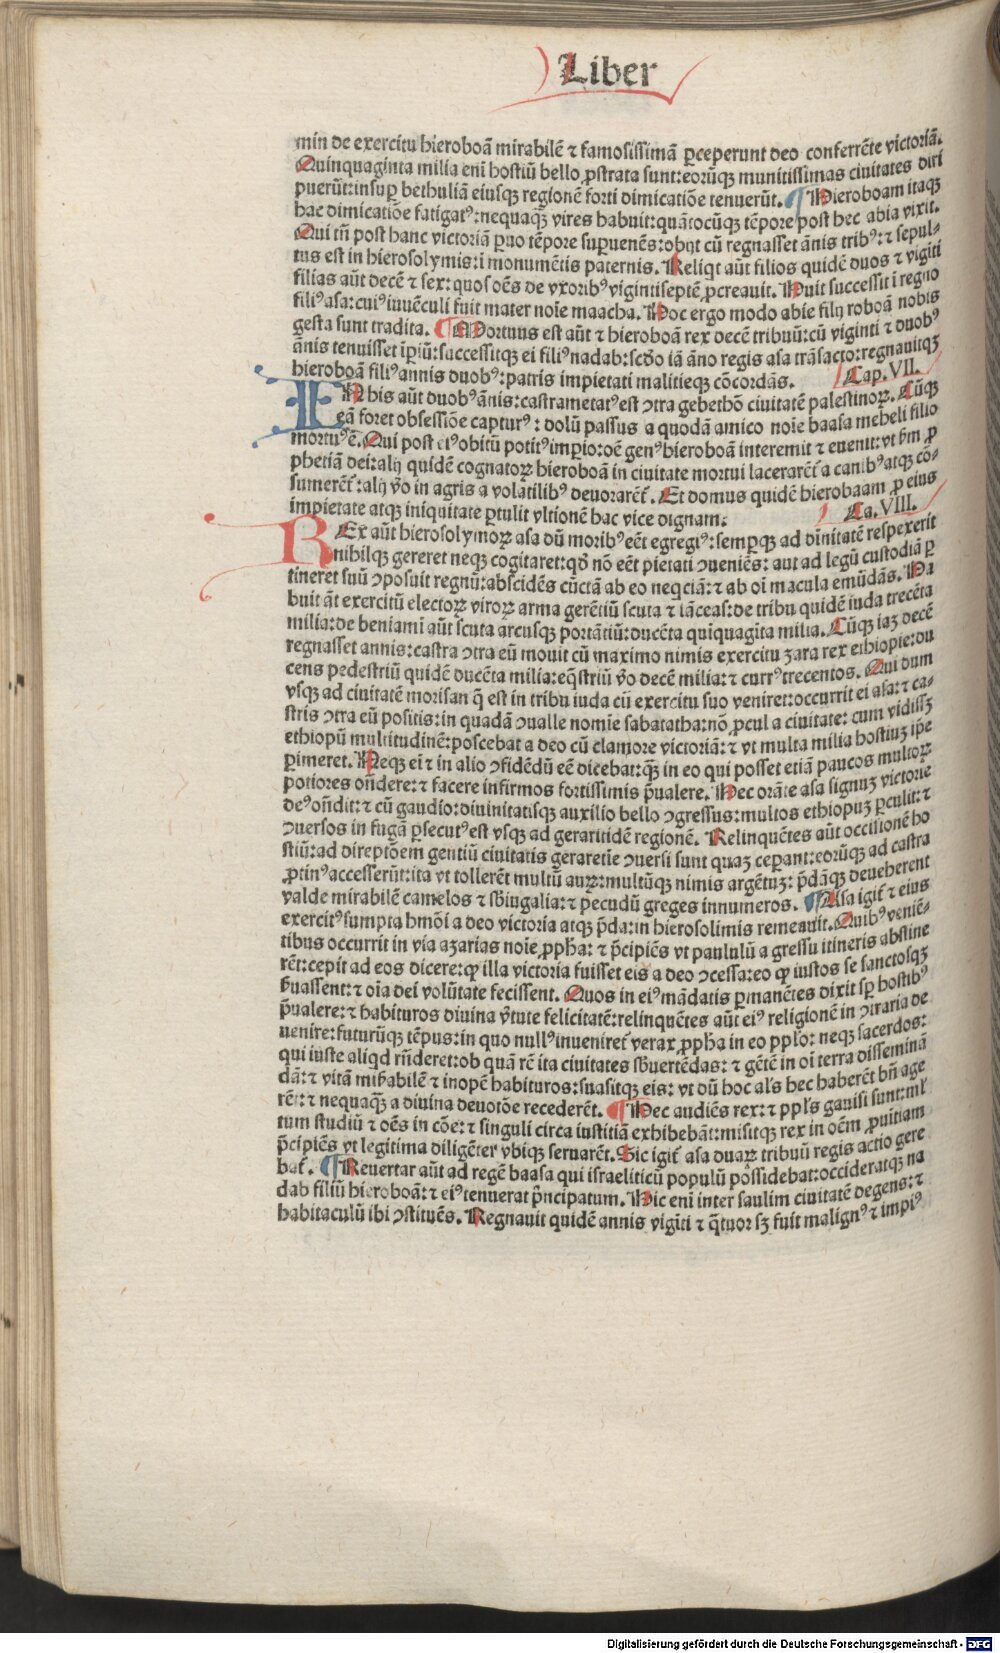 Liber
min de exercitu hieroboã mirabilẽ ⁊ famosissimã ꝑceperunt deo conferrẽte victoriã.
Quinquaginta milia enĩ hostiũ bello ꝓstrata sunt:eorũqꝫ munitissimas ciuitates diri
puerũt:insuꝑ bethuliã eiusqꝫ regionẽ forti dimicatiõe tenuerũt. ¶ Hieroboam itaqꝫ
hac dimicatiõe fatigatꝰ:nequaqͣꝫ vires habuit:quãtocũqꝫ tẽpore post hec abia vixit.
Qui tñ post hanc victoriã ꝑuo tẽpore suꝑuenẽs:obijt cũ regnasset ãnis tribꝰ:⁊ sepul⸗
tus est in hierosolymis:ĩ monumẽtis paternis. Reliqt aũt filios quidẽ duos ⁊ vigĩti
filias aũt decẽ ⁊ sex:quos oẽs de vxoribꝰ vigintiseptẽ ꝓcreauit. Huic successit ĩ regno
filiꝰ asa:cuiꝰ iuuẽculi fuit mater noĩe maacha. Hoc ergo modo abie filij roboã nobis
gesta sunt tradita. ¶ Mortuus est aũt ⁊ hieroboã rex decẽ tribuũ:cũ viginti ⁊ duobꝰ
ãnis tenuisset ĩꝑiũ:successitqꝫ ei filiꝰ nadab:scđo iã ãno regis asa trãsacto:regnauitqꝫ
hieroboã filiꝰ annis duobꝰ:patris impietati malitieqꝫ cõcordãs. Cap.VII.
IN his aũt duobꝰ ãnis:castrametatꝰ est ɔtra gebethõ ciuitatẽ palestinoꝝ. Cũqꝫ
eã foret obsessiõe capturꝰ: dolũ passus a quodã amico noĩe baasa mebeli filio
mortuꝰ ẽ. Qui post eiꝰ obitũ potitꝰ imperio:oẽ genꝰ hieroboã interemit ⁊ euenit:vt ẜm ꝓ
phetiã dei:alij quidẽ cognatoꝝ hieroboã in ciuitate mortui lacerarẽt᷑ a canibꝰ atqꝫ cõ⸗
sumerẽt᷑:alij v̊o in agris a volatilibꝰ deuorarẽt᷑. Et domus quidẽ hierobaam ꝓ eius
impietate atqꝫ iniquitate ꝑtulit vltionẽ hac vice dignam. Ca.VIII.
REx aũt hierosolymoꝝ asa dũ moribꝰ eẽt egregiꝰ:semꝑqꝫ ad diũnitatẽ respexerit
nihilqꝫ gereret neqꝫ cogitaret:qđ nõ eẽt pietati ɔueniẽs: aut ad legũ custodiã ꝑ
tineret suũ ɔposuit regnũ:abscidẽs cũctã ab eo neqciã:⁊ ab oĩ macula emũdãs. Ha
buit ãt exercitũ electoꝝ viroꝝ arma gerẽtiũ scuta ⁊ lãceas:de tribu quidẽ iuda trecẽta
milia:de beniamĩ aũt scuta arcusqꝫ portãtiũ:ducẽta quĩquagĩta milia. Cũqꝫ iaꝫ decẽ
regnasset annis:castra ɔtra eũ mouit cũ maximo nimis exercitu zara rex ethiopie:du
cens pedestriũ quidẽ ducẽta milia:eq̃striũ v̊o decẽ milia:⁊ currꝰ trecentos. Qui dum
vsqꝫ ad ciuitatẽ morisan q̃ est in tribu iuda cũ exercitu suo veniret:occurrit ei asa:⁊ ca⸗
stris ɔtra eũ positis:in quadã ɔualle nomĩe sabatatha:nõ ꝓcul a ciuitate: cum vidissꝫ
ethiopũ multitudinẽ:poscebat a deo cũ clamore victoriã:⁊ vt multa milia hostiuꝫ ip̃e
ꝑimeret. Neqꝫ eĩ ⁊ in alio ɔfidẽdũ eẽ dicebat:qͣꝫ in eo qui posset etiã paucos multoꝝ
potiores oñdere:⁊ facere infirmos fortissimis p̃ualere. Hec orãte asa signuꝫ victorie
deꝰ oñdit:⁊ cũ gaudio:diuinitatisqꝫ auxilio bello ɔgressus:multos ethiopuꝫ ꝑculit:⁊
ɔuersos in fugã ꝑsecutꝰ est vsqꝫ ad geraritidẽ regionẽ. Relinquẽtes aũt occisionẽ ho
stiũ:ad direptõem gentiũ ciuitatis geraretie ɔuersi sunt quaꝫ ceperant:eorũqꝫ ad castra
ꝓtinꝰ accesserũt:ita vt tollerẽt multũ auꝝ:multũqꝫ nimis argẽtuꝫ: p̃dãqꝫ deueherent
valde mirabilẽ camelos ⁊ sb̾iugalia:⁊ pecudũ greges innumeros. ¶ Asa igit᷑ ⁊ eius
exercitꝰ sumpta hmõi a deo victoria atqꝫ p̃da:in hierosolimis remeauit. Quibꝰ veniẽ⸗
tibus occurrit in via azarias noĩe ꝓpħa: ⁊ p̃cipiẽs vt paululũ a gressu itineris abstine
rẽt:cepit ad eos dicere:ꝙ illa victoria fuisset eis a deo ɔcessa:eo ꝙ iustos se sanctosqꝫ
ẜuassent:⁊ oĩa dei volũtate fecissent. Quos in eiꝰ mãdatis ꝑmanẽtes dixit sꝑ hostibꝰ
p̃ualere:⁊ habituros diuina v̾tute felicitatẽ:relinquẽtes aũt eiꝰ religionẽ in ɔtraria de
uenire:futurũqꝫ tẽpus:in quo nullꝰ inueniret᷑ verax ꝓpħa in eo pplo: neqꝫ sacerdos:
qui iuste aliqd rñderet:ob quã rẽ ita ciuitates sb̾uertẽdas: ⁊ gẽtẽ in oĩ terra disseminã
dã:⁊ vitã miẜabilẽ ⁊ inopẽ habituros:suasitqꝫ eis: vt dũ hoc als hec haberẽt bñ age
rẽt:⁊ nequaqͣꝫ a diuina deuotõe recederẽt. ¶ Hec audiẽs rex:⁊ ppls gauisi sunt:ml᷑
tum studiũ ⁊ oẽs in cõe:⁊ singuli circa iustitiã exhibebãt:misitqꝫ rex in oẽm ꝓuĩtiam
p̃cipiẽs vt legitima diligẽter vbiqꝫ seruarẽt. Sic igit᷑ asa duaꝝ tribuũ regis actio gere
bat᷑. ¶ Reuertar aũt ad regẽ baasa qui israeliticũ populũ possidebat:occideratqꝫ na
dab filiũ hieroboã:⁊ eiꝰ tenuerat p̃ncipatum. Hic enĩ inter saulim ciuitatẽ degens:⁊
habitaculũ ibi ɔstituẽs. Regnauit quidẽ annis vigĩti ⁊ q̃tuor sꝫ fuit malignꝰ ⁊ impiꝰ
Digitalisierung gefördert durch die Deutsche Forschungsgemeinschaft - DFG